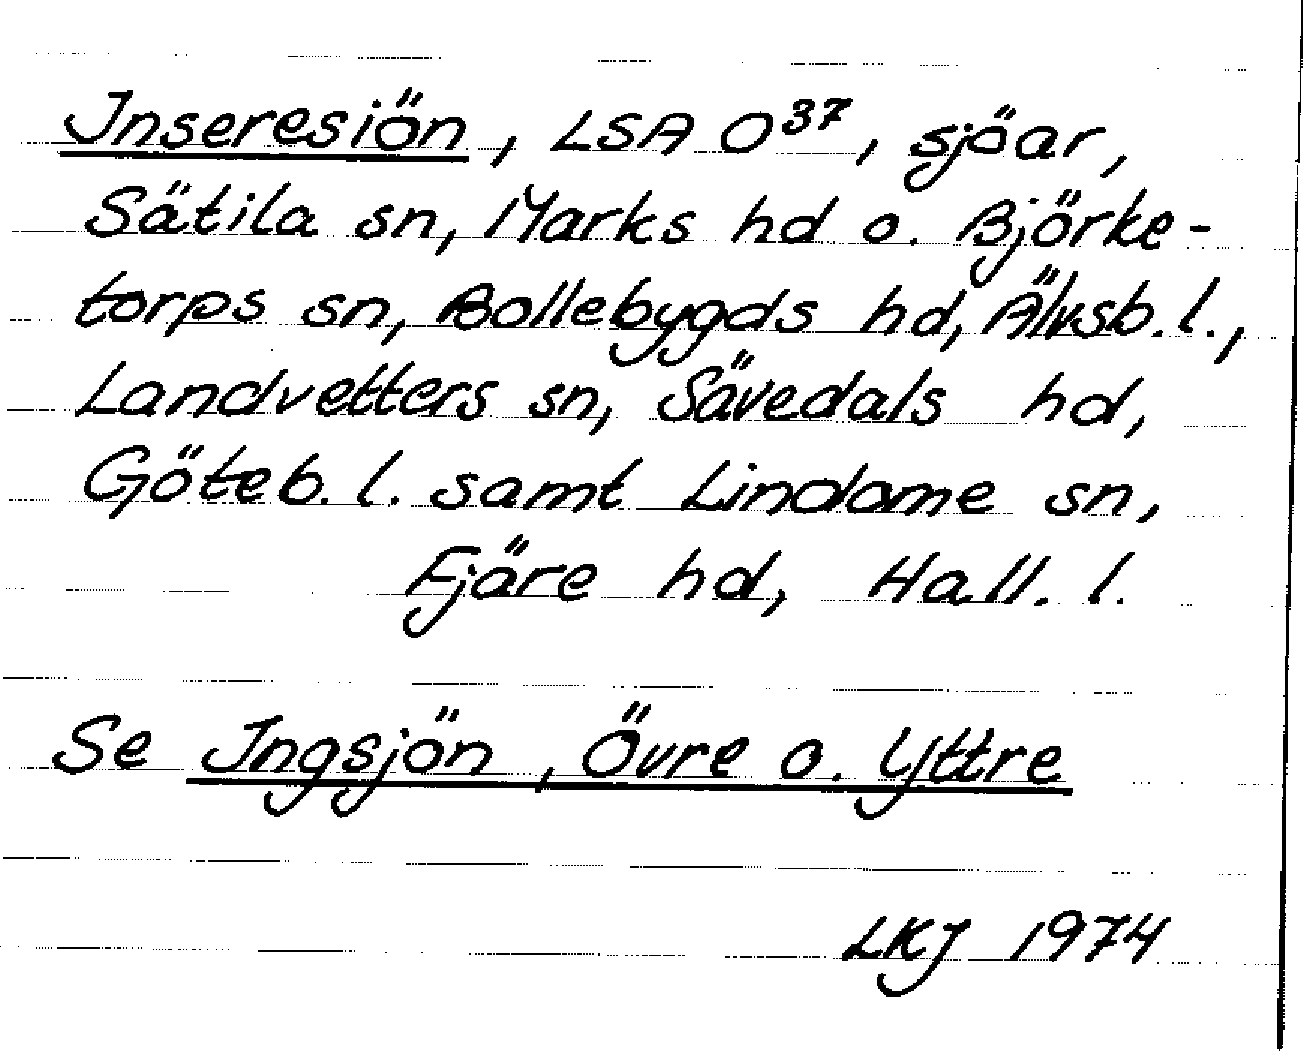 Jnseresiön, LSA O³⁷, sjöar,
Sätila sn, Marks hd o. Björke-
torps sn, Bollebygds hd, Älvsb. l.,
Landvetters sn, Sävedals hd,
Göteb. l. samt Lindome sn,
Fjäre hd, Hall. l.
Se Jngsjön, Övre o. Yttre
LKJ 1974